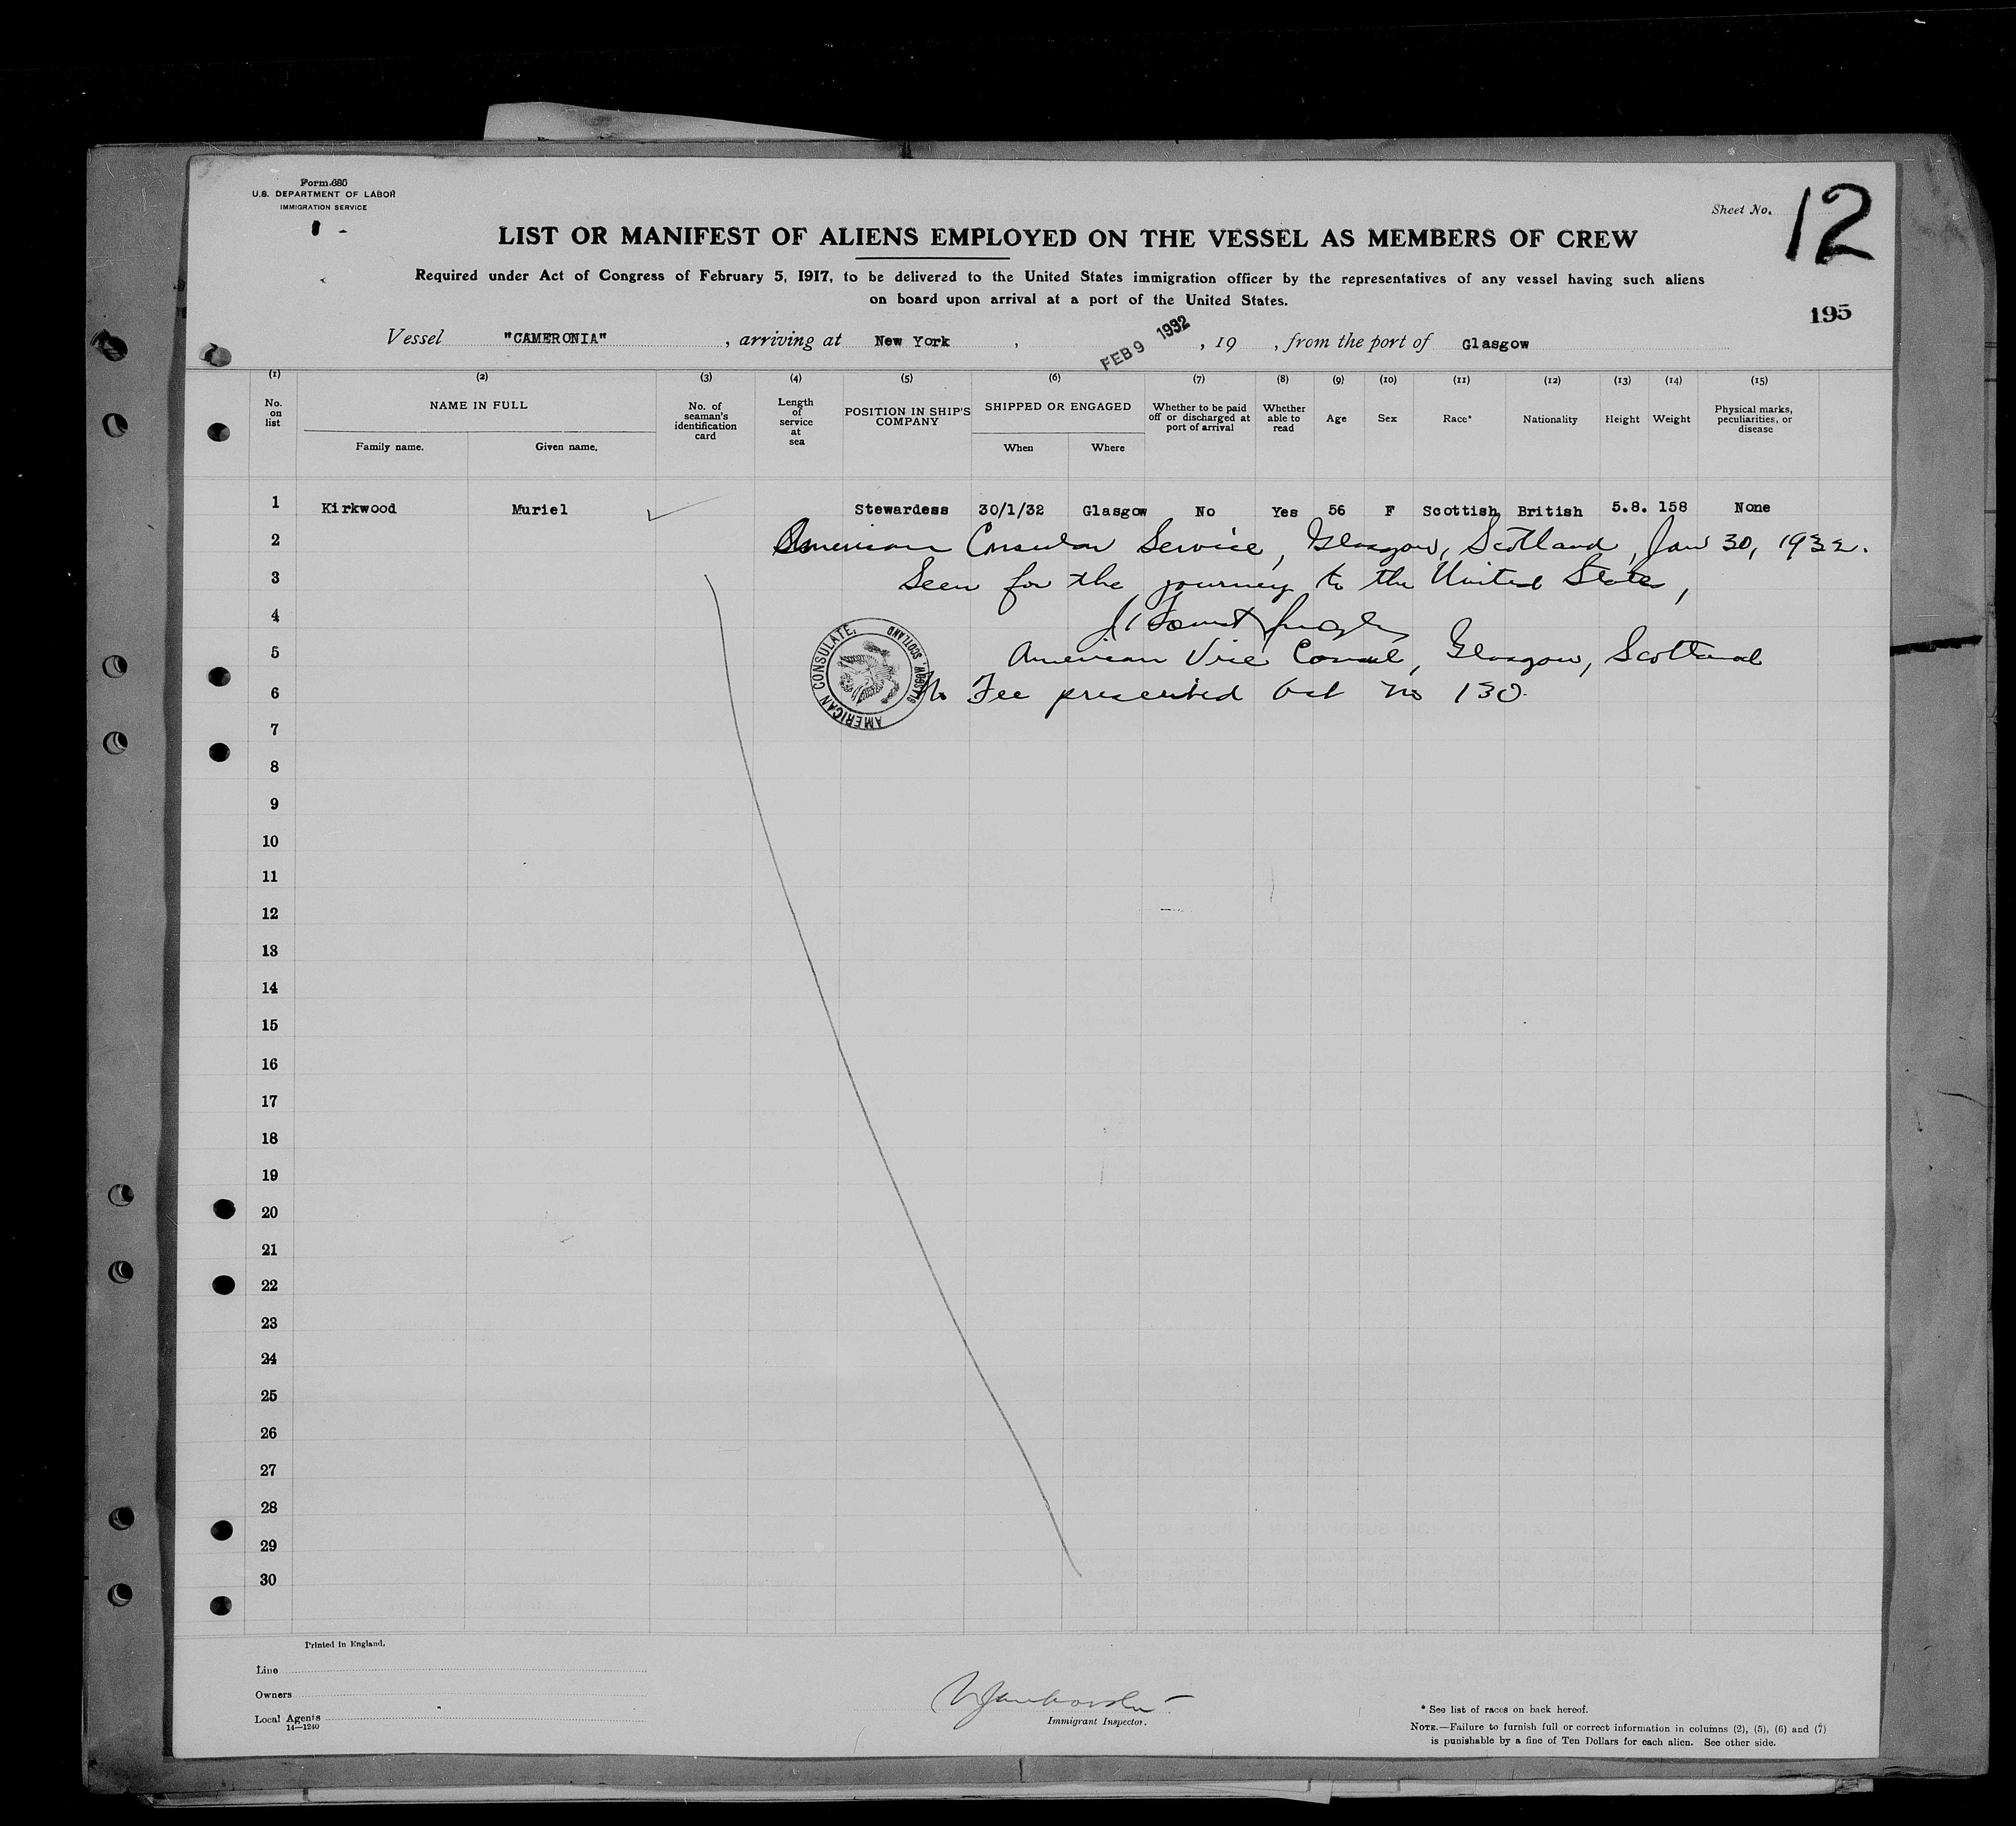 Form 680
U.S. DEPARTMENT OF LABOR
IMMIGRATION SERVICE
Sheet No. 12
LIST OR MANIFEST OF ALIENS EMPLOYED ON THE VESSEL AS MEMBERS OF CREW
Required under Act of Congress of February 5, 1917, to be delivered to the United States immigration officer by the representatives of any vessel having such aliens
on board upon arrival at a port of the United States.
195
Vessel "CAMERONIA", arriving at New York, FEB 9 1932, 19 , from the port of Glasgow
(1) (2) (3) (4) (5) (6) (7) (8) (9) (10) (11) (12) (13) (14) (15)
No. on list
NAME IN FULL
Family name. Given name.
No. of seaman's identification card
Length of service at sea
POSITION IN SHIP'S COMPANY
SHIPPED OR ENGAGED
When Where
Whether to be paid off or discharged at port of arrival
Whether able to read
Age
Sex
Race*
Nationality
Height
Weight
Physical marks, peculiarities, or disease
1 Kirkwood Muriel Stewardess 30/1/32 Glasgow No Yes 56 F Scottish British 5.8. 158 None
2 American Consular Service, Glasgow, Scotland, Jan 30, 1932.
3 Seen for the journey to the United States,
4
5 American Vice Consul, Glasgow, Scotland
AMERICAN CONSULATE, GLASGOW, SCOTLAND
6 No Fee prescribed No 130
7
8
9
10
11
12
13
14
15
16
17
18
19
20
21
22
23
24
25
26
27
28
29
30
Printed in England.
Line
Owners
Local Agents
14—1240
Immigrant Inspector.
* See list of races on back hereof.
NOTE.—Failure to furnish full or correct information in columns (2), (5), (6) and (7)
is punishable by a fine of Ten Dollars for each alien. See other side.